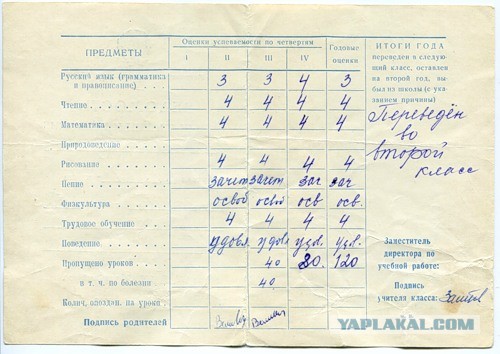 ПРЕДМЕТЫ
Оценки успеваемости по четвертям
Годовые оценки
I II III IV
Русский язык (грамматика и правописание) 3 3 4 3
Чтение 4 4 4 4
Математика 4 4 4 4
Природоведение
Рисование 4 4 4 4
Пение зачет зачет зач зач
Физкультура освоб освоб осв осв.
Трудовое обучение 4 4 4 4
Поведение удовл. удовл уд.
Пропущено уроков 40 120
в т. ч. по болезни 40
Колич. опоздан. на уроки
Подпись родителей
ИТОГИ ГОДА
переведен в следую-
щий класс, оставлен
на второй год, вы-
был из школы (с ука-
занием причины)
Переведён
во
второй
класс
Заместитель
директора по
учебной работе:
Подпись
учителя класса:
YAPLAKAL.COM